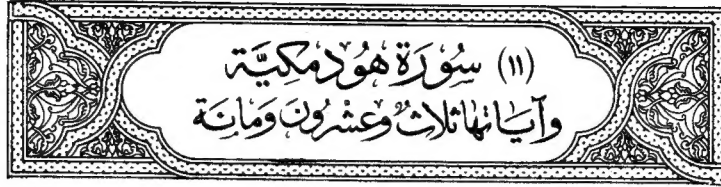 (١١) سُورَة هُود مَكِيَّة
وَآيَاتهَا ثَلَاثٌ وَعِشْرُونَ وَمَائَة